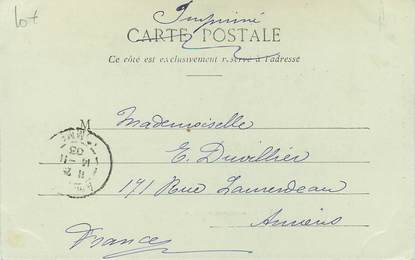 lot
Imprimé
CARTE POSTALE
Ce côté est exclusivement réservé à l'adresse
M
Mademoiselle
E. Duvillier
171 Rue Laurendeau
Amiens
France